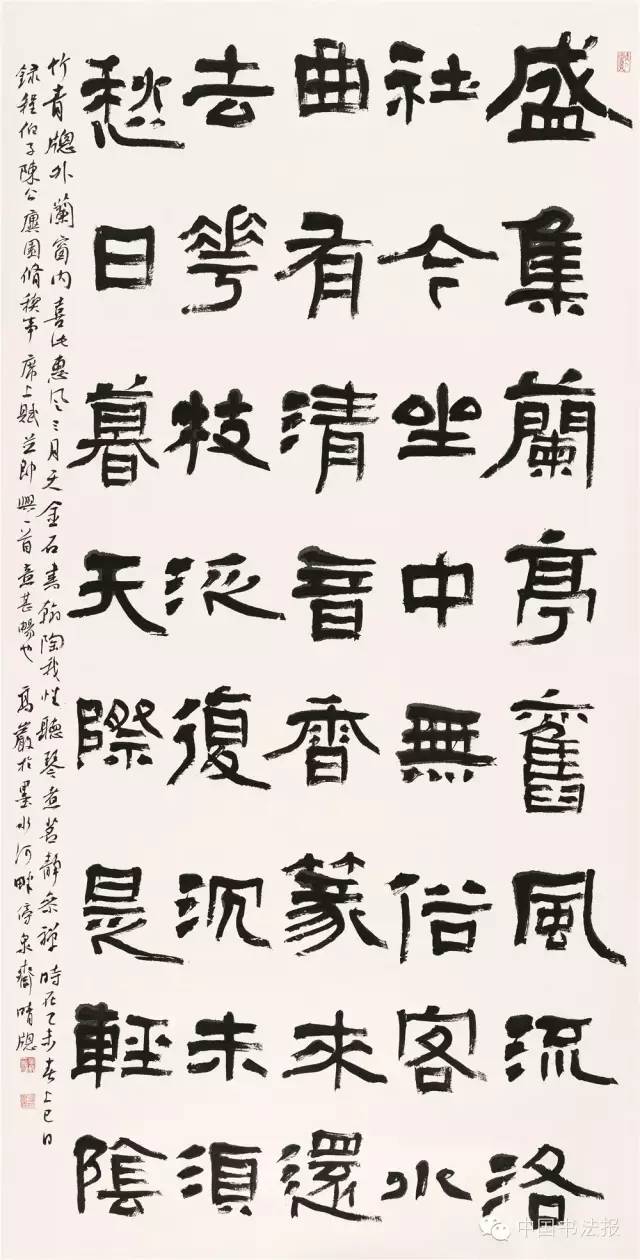 盛集蘭亭舊風流洛
社今坐中無俗客水
曲有清音香篆來還
去花枝泛復沉未須
愁日暮天際是輕陰
竹青牕外蘭窗內喜沐惠風三月天金石書翰陶我性聽琴煮茗靜參禪 時在乙未春上巳日
錄程伯子陳公廙園脩禊事席上賦並即興一首意甚暢也 高嚴於墨水河畔停泉齋晴牕
中国书法报